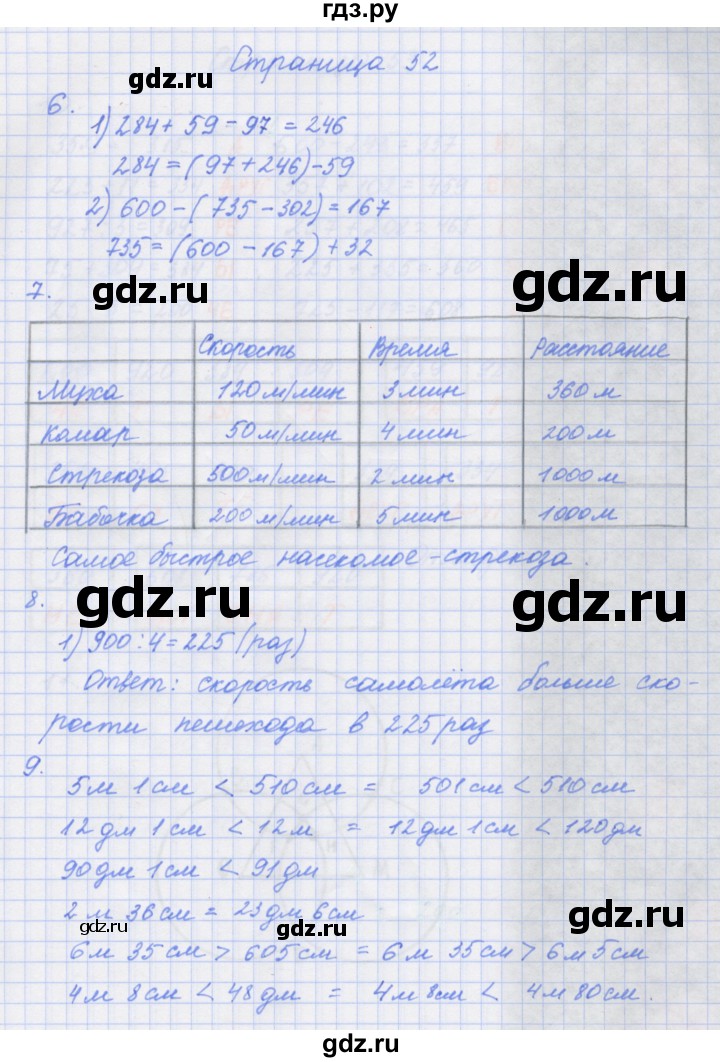 гдз.ру
Страница 52
gdz.ru
6.
1) 284 + 59 - 97 = 246
284 = (97 + 246) - 59
2) 600 - (735 - 302) = 167
735 = (600 - 167) + 32
gdz.ru
gdz.ru
7.
Скорость Время Расстояние
Муха 120 м/мин 3 мин 360 м
Комар 50 м/мин 4 мин 200 м
Стрекоза 500 м/мин 2 мин 1000 м
Бабочка 200 м/мин 5 мин 1000 м
Самое быстрое насекомое - стрекоза.
gdz.ru
gdz.ru
8.
1) 900 : 4 = 225 (раз)
Ответ: скорость самолёта больше ско-
рости пешехода в 225 раз
9.
5 м 1 см < 510 см = 501 см < 510 см
12 дм 1 см < 12 м = 12 дм 1 см < 120 дм
90 дм 1 см < 91 дм
2 м 36 см = 23 дм 6 см
gdz.ru
gdz.ru
gdz.ru
6 м 35 см > 605 см = 6 м 35 см > 6 м 5 см
4 м 8 см < 48 дм = 4 м 8 см < 4 м 80 см.
gdz.ru